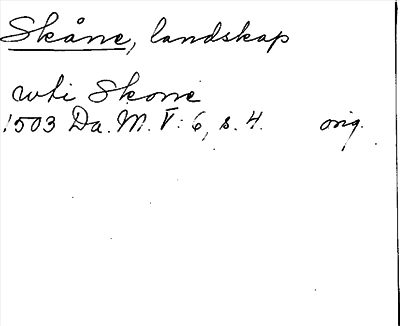 Skåne, landskap
uti Skone
1503 Da. M. V: 6, s. 4. orig.